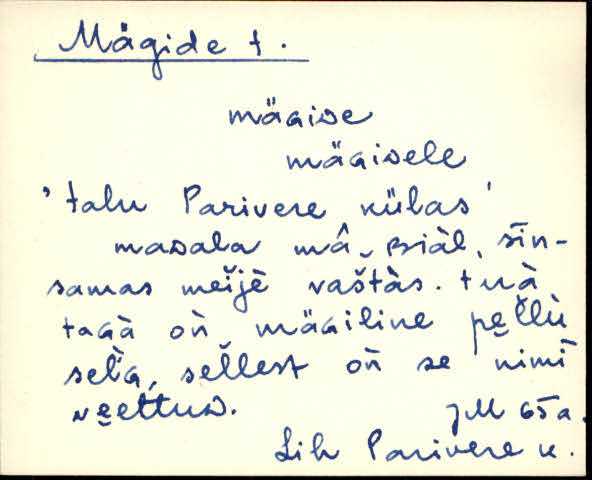 Mägide t.
mäGiDe
mäGiDele
'talu Parivere külas'
maDala mâ, psiàl, sīn-
samas meijè vaštàs. tuà
taGà oǹ mäGiline pe̬llù
selGa, sellest oǹ se nimì
ve̬ettuD.
JM 65 a.
Lih Parivere k.